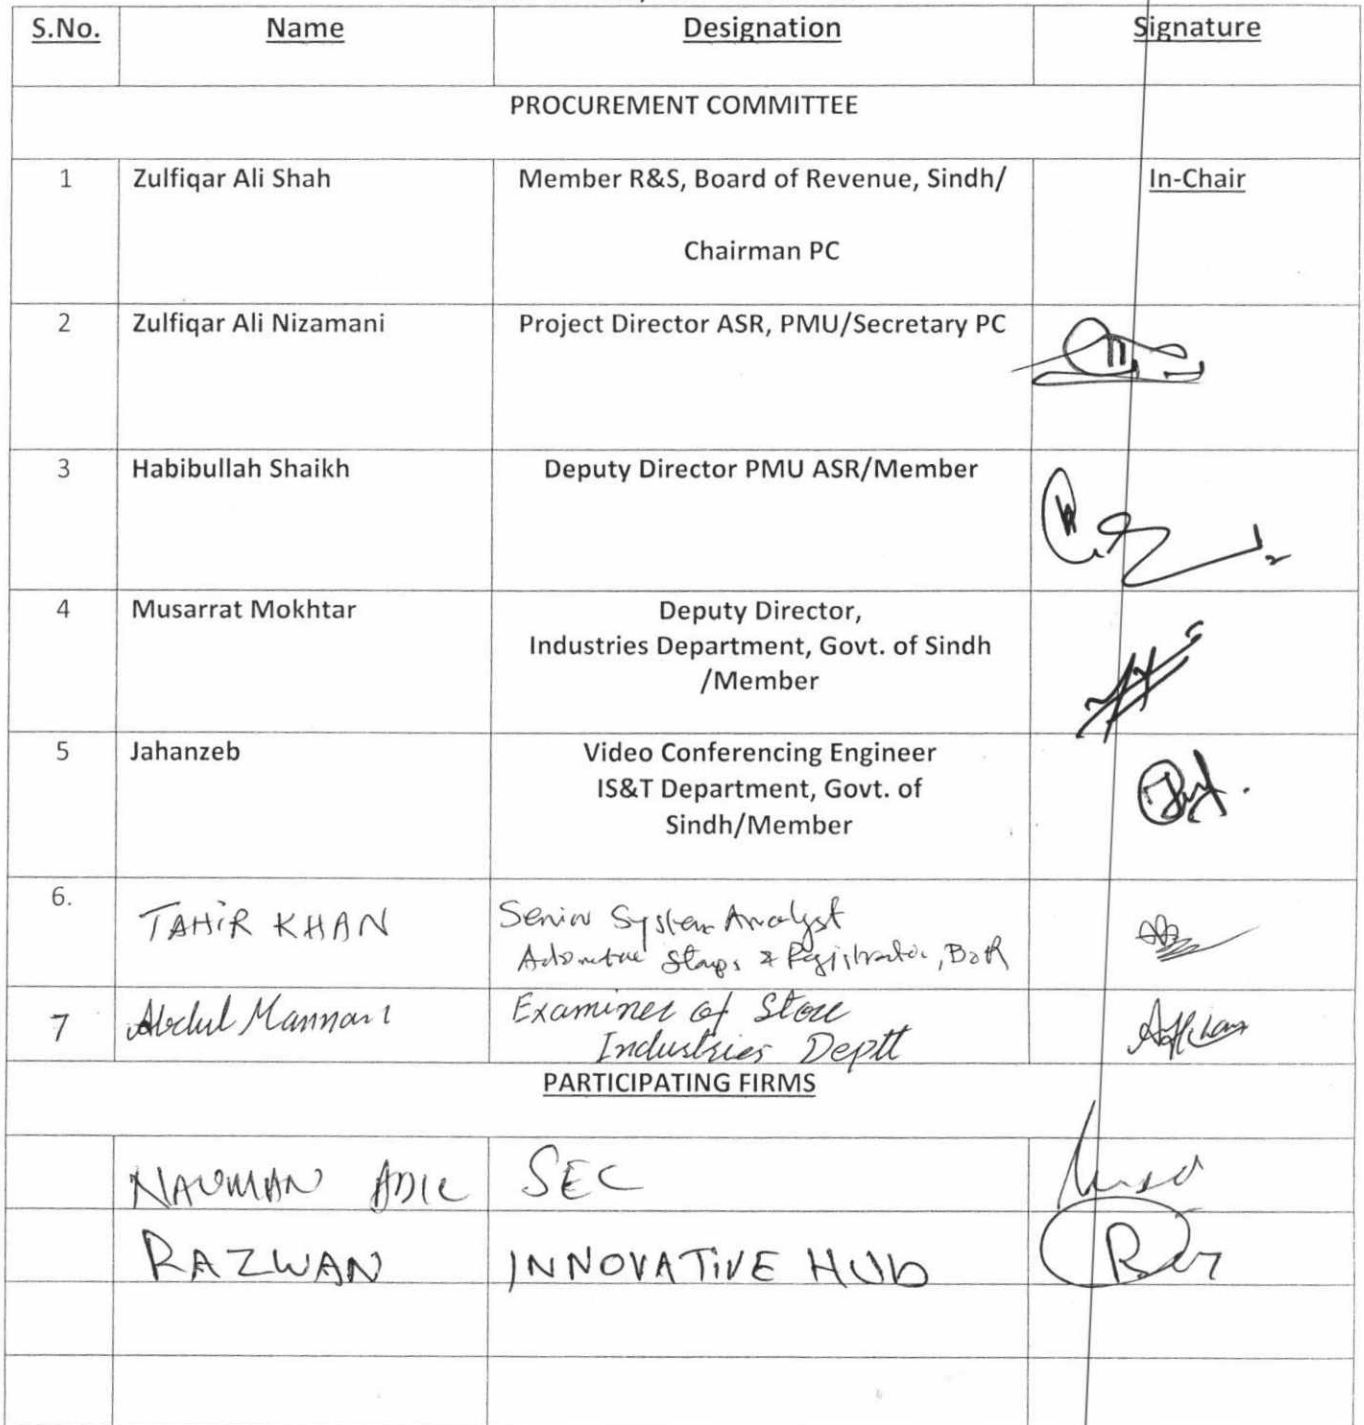 S.No. Name Designation Signature
PROCUREMENT COMMITTEE
1 Zulfiqar Ali Shah Member R&S, Board of Revenue, Sindh/ In-Chair
Chairman PC
2 Zulfiqar Ali Nizamani Project Director ASR, PMU/Secretary PC
3 Habibullah Shaikh Deputy Director PMU ASR/Member
4 Musarrat Mokhtar Deputy Director,
Industries Department, Govt. of Sindh
/Member
5 Jahanzeb Video Conferencing Engineer
IS&T Department, Govt. of
Sindh/Member
6. TAHIR KHAN Senior System Analyst
Stamps & Registration, BoR
7 Abdul Mannan Examiner of Store
Industries Deptt
PARTICIPATING FIRMS
NAUMAN ADIL SEC
RAZWAN INNOVATIVE HUB